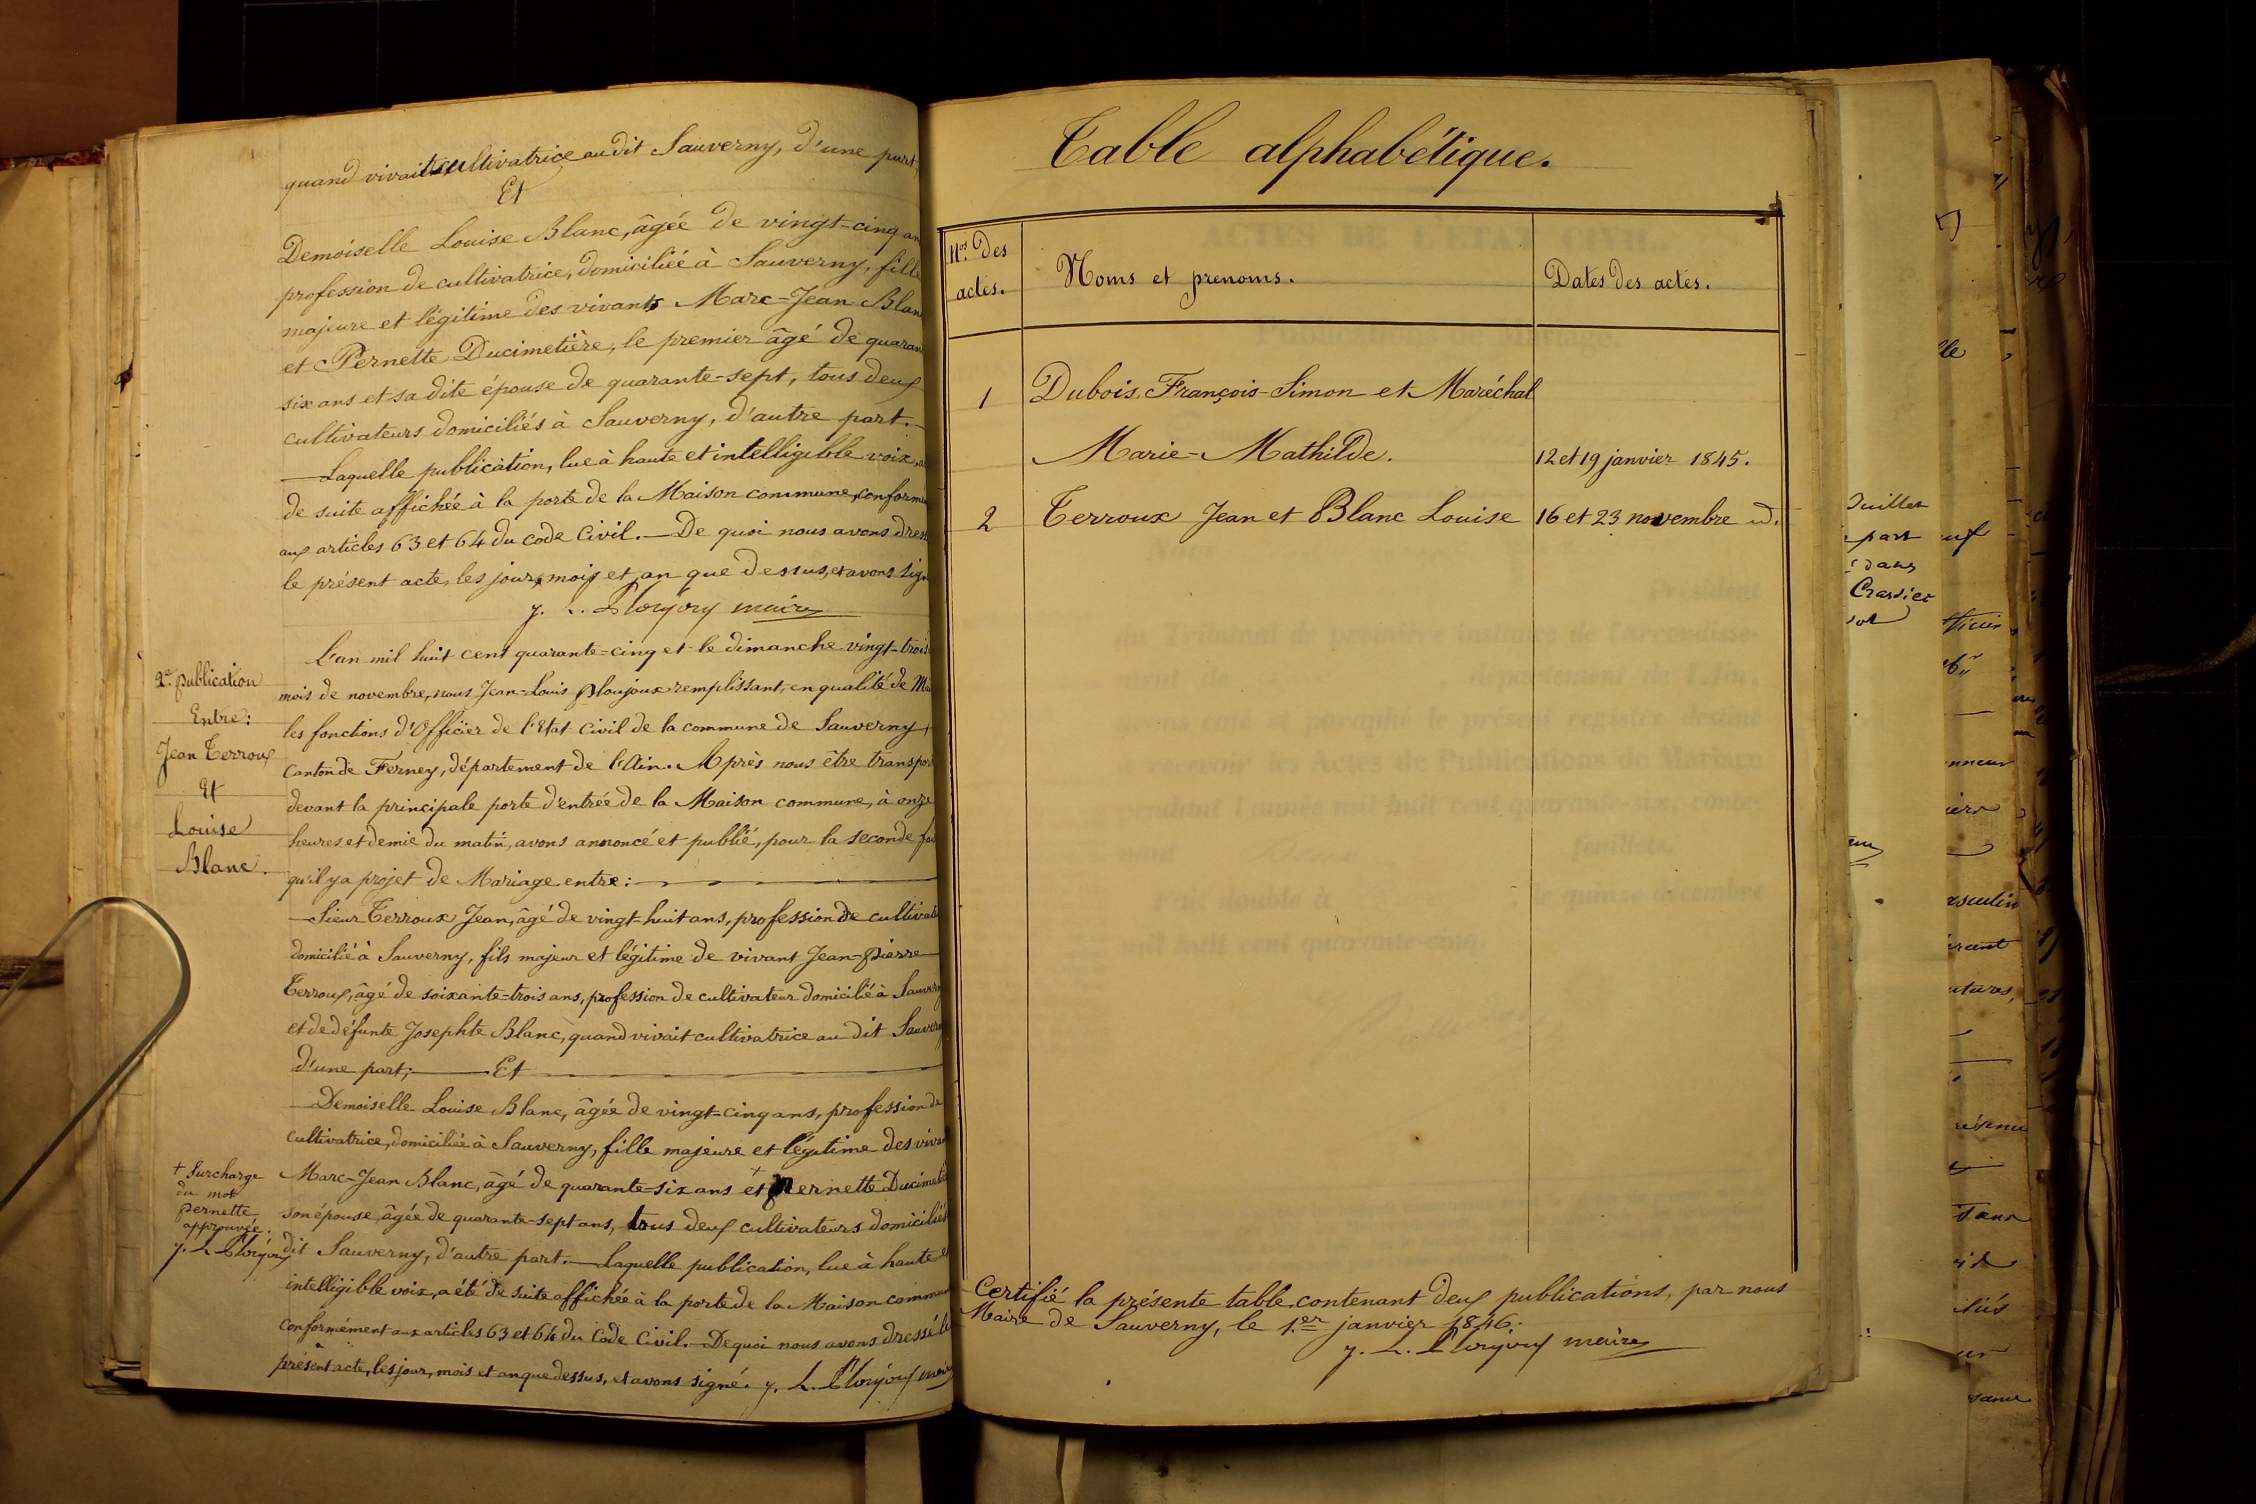 quand vivait cultivatrice au dit Sauverny, d'une part,
Et
Demoiselle Louise Blanc, âgée de vingt-cinq an
profession de cultivatrice, domiciliée à Sauverny, fille
majeure et légitime des vivants Marc-Jean Blan
et Pernette Ducimetière, le premier âgé de quaran
six ans et sa dite épouse de quarante-sept, tous deux
cultivateurs domiciliés à Sauverny, d'autre part.
Laquelle publication, lue à haute et intelligible voix, a
de suite affichée à la porte de la Maison commune, conformé
aux articles 63 et 64 du code Civil. — De quoi nous avons dress
le présent acte, les jour, mois et an que dessus, et avons sign
J. L. Ploujoux maire
L'an mil huit cent quarante-cinq et le dimanche vingt-trois
mois de novembre, nous Jean-Louis Ploujoux remplissant, en qualité de Ma
les fonctions d'Officier de l'Etat Civil de la commune de Sauverny,
canton de Ferney, département de l'Ain. Après nous être transpor
devant la principale porte d'entrée de la Maison commune, à onze
heures et demie du matin, avons annoncé et publié, pour la seconde foi
qu'il y a projet de Mariage entre:
Sieur Terroux Jean, âgé de vingt-huit ans, profession de cultivate
domicilié à Sauverny, fils majeur et légitime de vivant Jean-Pierre
Terroux, âgé de soixante-trois ans, profession de cultivateur domicilié à Sauvern
et de défunte Josephte Blanc, quand vivait cultivatrice au dit Sauvern
d'une part; — Et
Demoiselle Louise Blanc, âgée de vingt-cinq ans, profession de
cultivatrice, domiciliée à Sauverny, fille majeure et légitime des vivan
Marc-Jean Blanc, âgé de quarante-six ans et + Pernette Ducimeti
son épouse, âgée de quarante-sept ans, tous deux cultivateurs domiciliés
dit Sauverny, d'autre part. — Laquelle publication, lue à haute et
intelligible voix, a été de suite affichée à la porte de la Maison commun
conformément aux articles 63 et 64 du Code Civil. — De quoi nous avons dressé le
présent acte, les jour, mois et an que dessus, et avons signé. J. L. Ploujoux maire
2e. publication
Entre:
Jean Terroux
Et
Louise
Blanc.
+ Surcharge
du mot
pernette
approuvée.
J. L. Ploujoux
Table alphabétique.
Nos. des
actes.
Noms et prenoms.
Dates des actes.
1
Dubois, François-Simon et Maréchal
Marie-Mathilde.
12 et 19 janvier 1845.
2
Terroux Jean et Blanc Louise
16 et 23 novembre id.
Certifié la présente table, contenant deux publications, par nous
Maire de Sauverny, le 1.er janvier 1846.
J. L. Ploujoux maire
Juillet
part
dans
Crassier